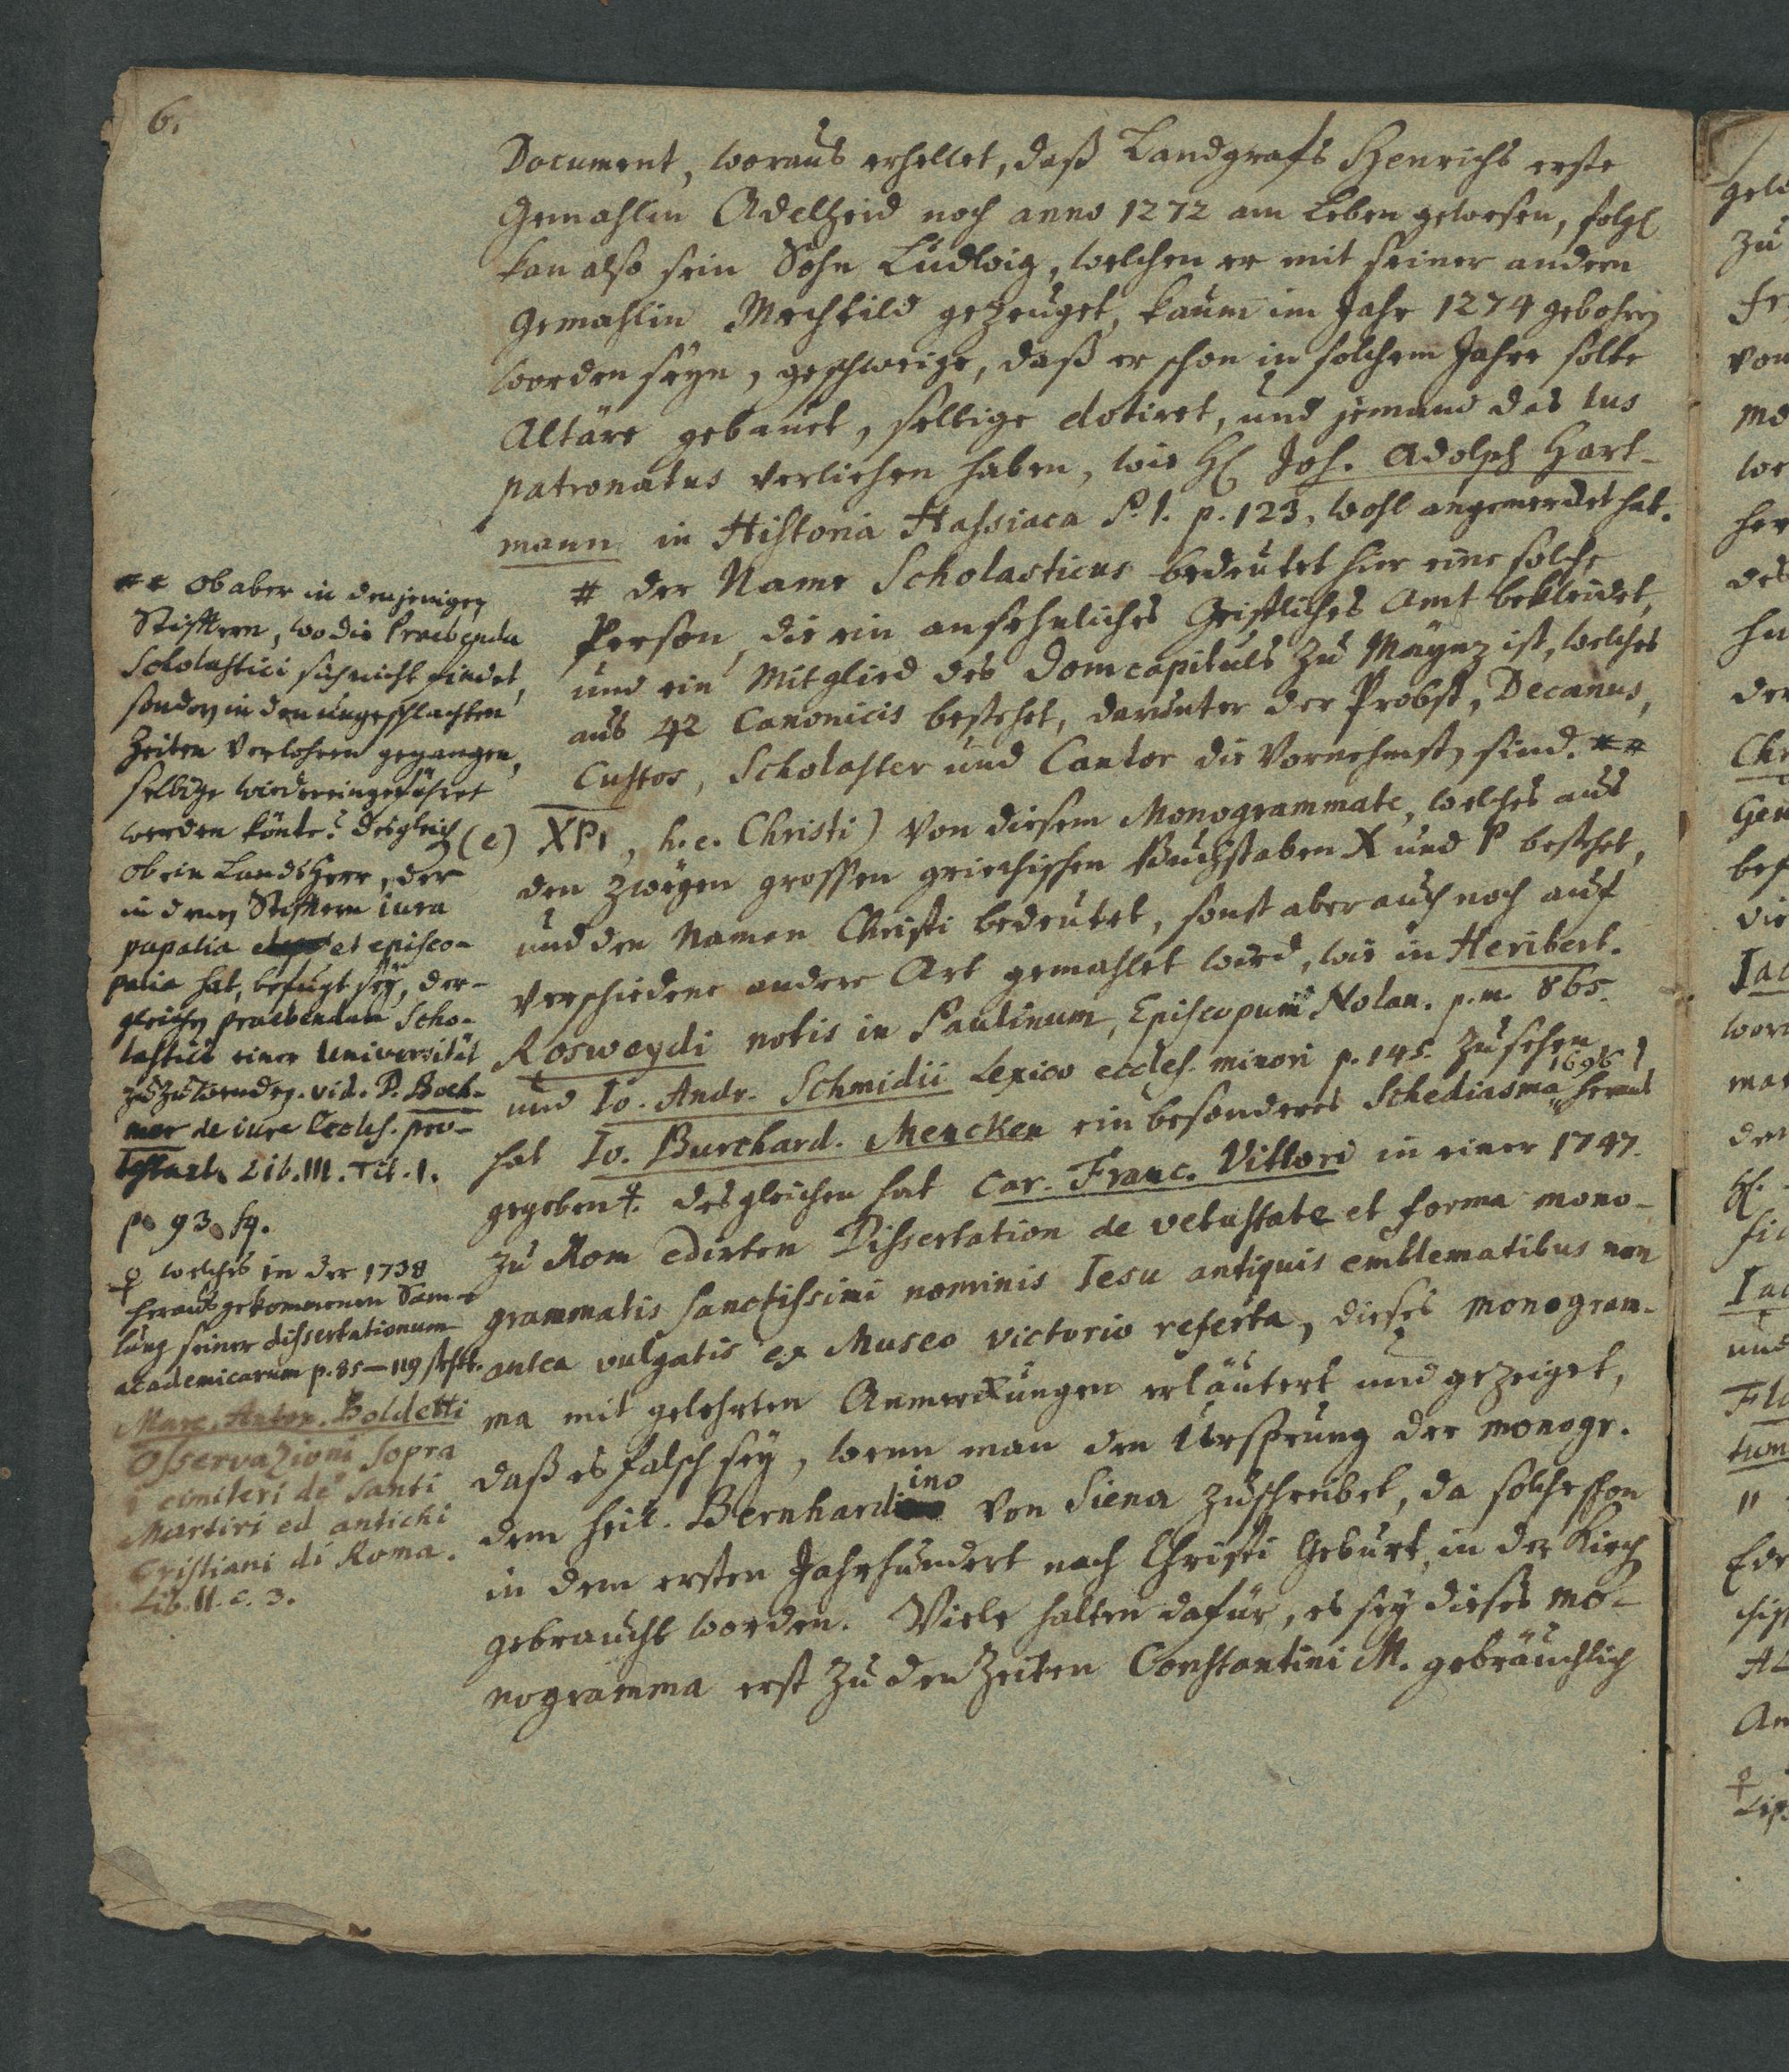 6.
Document, woraus erhellet, daß Landgrafs Henrichs erste
Gemahlin Adelheid noch anno 1272 am Leben gewesen, folgl.
kan also sein Sohn Ludwig, welchen er mit seiner andern
Gemahlin Mechtild gezeuget, kaum im Jahr 1274 gebohren
worden seyn, geschweige, daß er schon in solchem Jahre solte
Altäre gebauet, selbige dotiret, und jemand das Ius
patronatus verliehen haben, wie H. Joh. Adolph Hart-
mann in Historia Hassiaca P. I. p. 123, wohl angemercket hat.
# der Name Scholasticus bedeutet hier eine solche
Person, die ein ansehnliches Geistliches Amt bekleidet,
und ein Mitglied des Domcapituls zu Maynz ist, welches
aus 42 Canonicis bestehet, darunter der Probst, Decanus,
Custos, Scholaster und Cantor die Vornehmsten sind. **
(e) XPI, h. e. Christi) Von diesem Monogrammate, welches aus
den zweyen grossen griechischen Buchstaben X und P bestehet,
und den Namen Christi bedeutet, sonst aber auch noch auf
verschiedene andere Art gemahlet wird, wie in Heribert.
Rosweydi notis in Paulinum, Episcopum Nolan. p. m. 865.
und Io. Andr. Schmidii Lexico eccles. minori p. 145. zu sehen
hat Io. Burchard. Mencken ein besonderes Schediasma 1696 heraus
gegeben ♀. desgleichen hat Car. Franc. Vittori in einer 1747.
zu Rom edirten Dissertation de vetustate et forma mono-
grammatis sanctissimi nominis Iesu antiquis emblematibus non
antea vulgatis ex Museo Victorio referta, dieses monogram-
ma mit gelehrten Anmerckungen erläutert und gezeiget,
daß es falsch sey, wenn man den Ursprung der monogr.
dem heil. Bernhardino von Siena zuschreibet, da solche schon
in dem ersten Jahrhundert nach Christi Geburt, in der Kirch
gebraucht worden. Viele halten dafür, es sey dieses mo-
nogramma erst zu den Zeiten Constantini M. gebräuchlich
** Ob aber in denjenigen
Stifftern, wo die Praebenda
Scholastici sich nicht findet,
sondern in den ungeschlachten
Zeiten verlohren gegangen,
selbige wieder eingeführet
werden könte? desgleich
ob ein Landsherr, der
in denen Stifftern iura
papalia et episco-
palia hat, befugt sey, der-
gleichen praebendam Scho-
lastici einer Universität
zuzuwenden. vid. D. Boeh-
mer de iure Eccles. pro-
testant. Lib. III. Tit. I.
p. 93. sq.
♀ welches in der 1738
heraus gekommenen Sam-
lung seiner dissertationum
academicarum p. 85–119 stehet.
Marc. Anton. Boldetti
Osservazioni sopra
i cimiteri de' Santi
Martiri ed antichi
Cristiani di Roma.
Lib. II. c. 3.